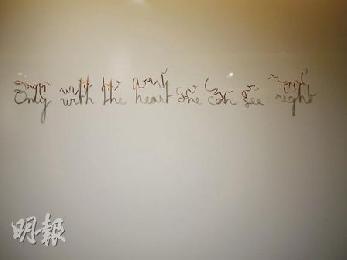 Only with the heart one can see right
明報